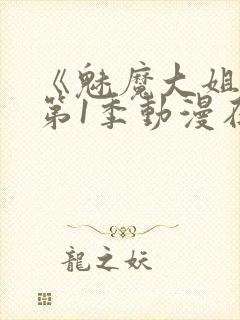 《魅魔大姐
第1季動漫在
龍之妖